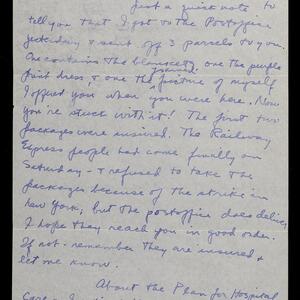 Just a quick note to
tell you that I got to the Postoffice
yesterday & sent off 3 parcels to you.
One contains the blanket, one the purple
dress & one the framed picture of myself
I offered you when you were here. Now
you're stuck with it! The first two
packages were insured. The Railway
Express people had come finally on
Saturday - & refused to take the
packages because of the strike in
New York; but the postoffice does deliver,
I hope they reach you in good order.
If not - remember they are insured &
let me know.
About the Plan for Hospital